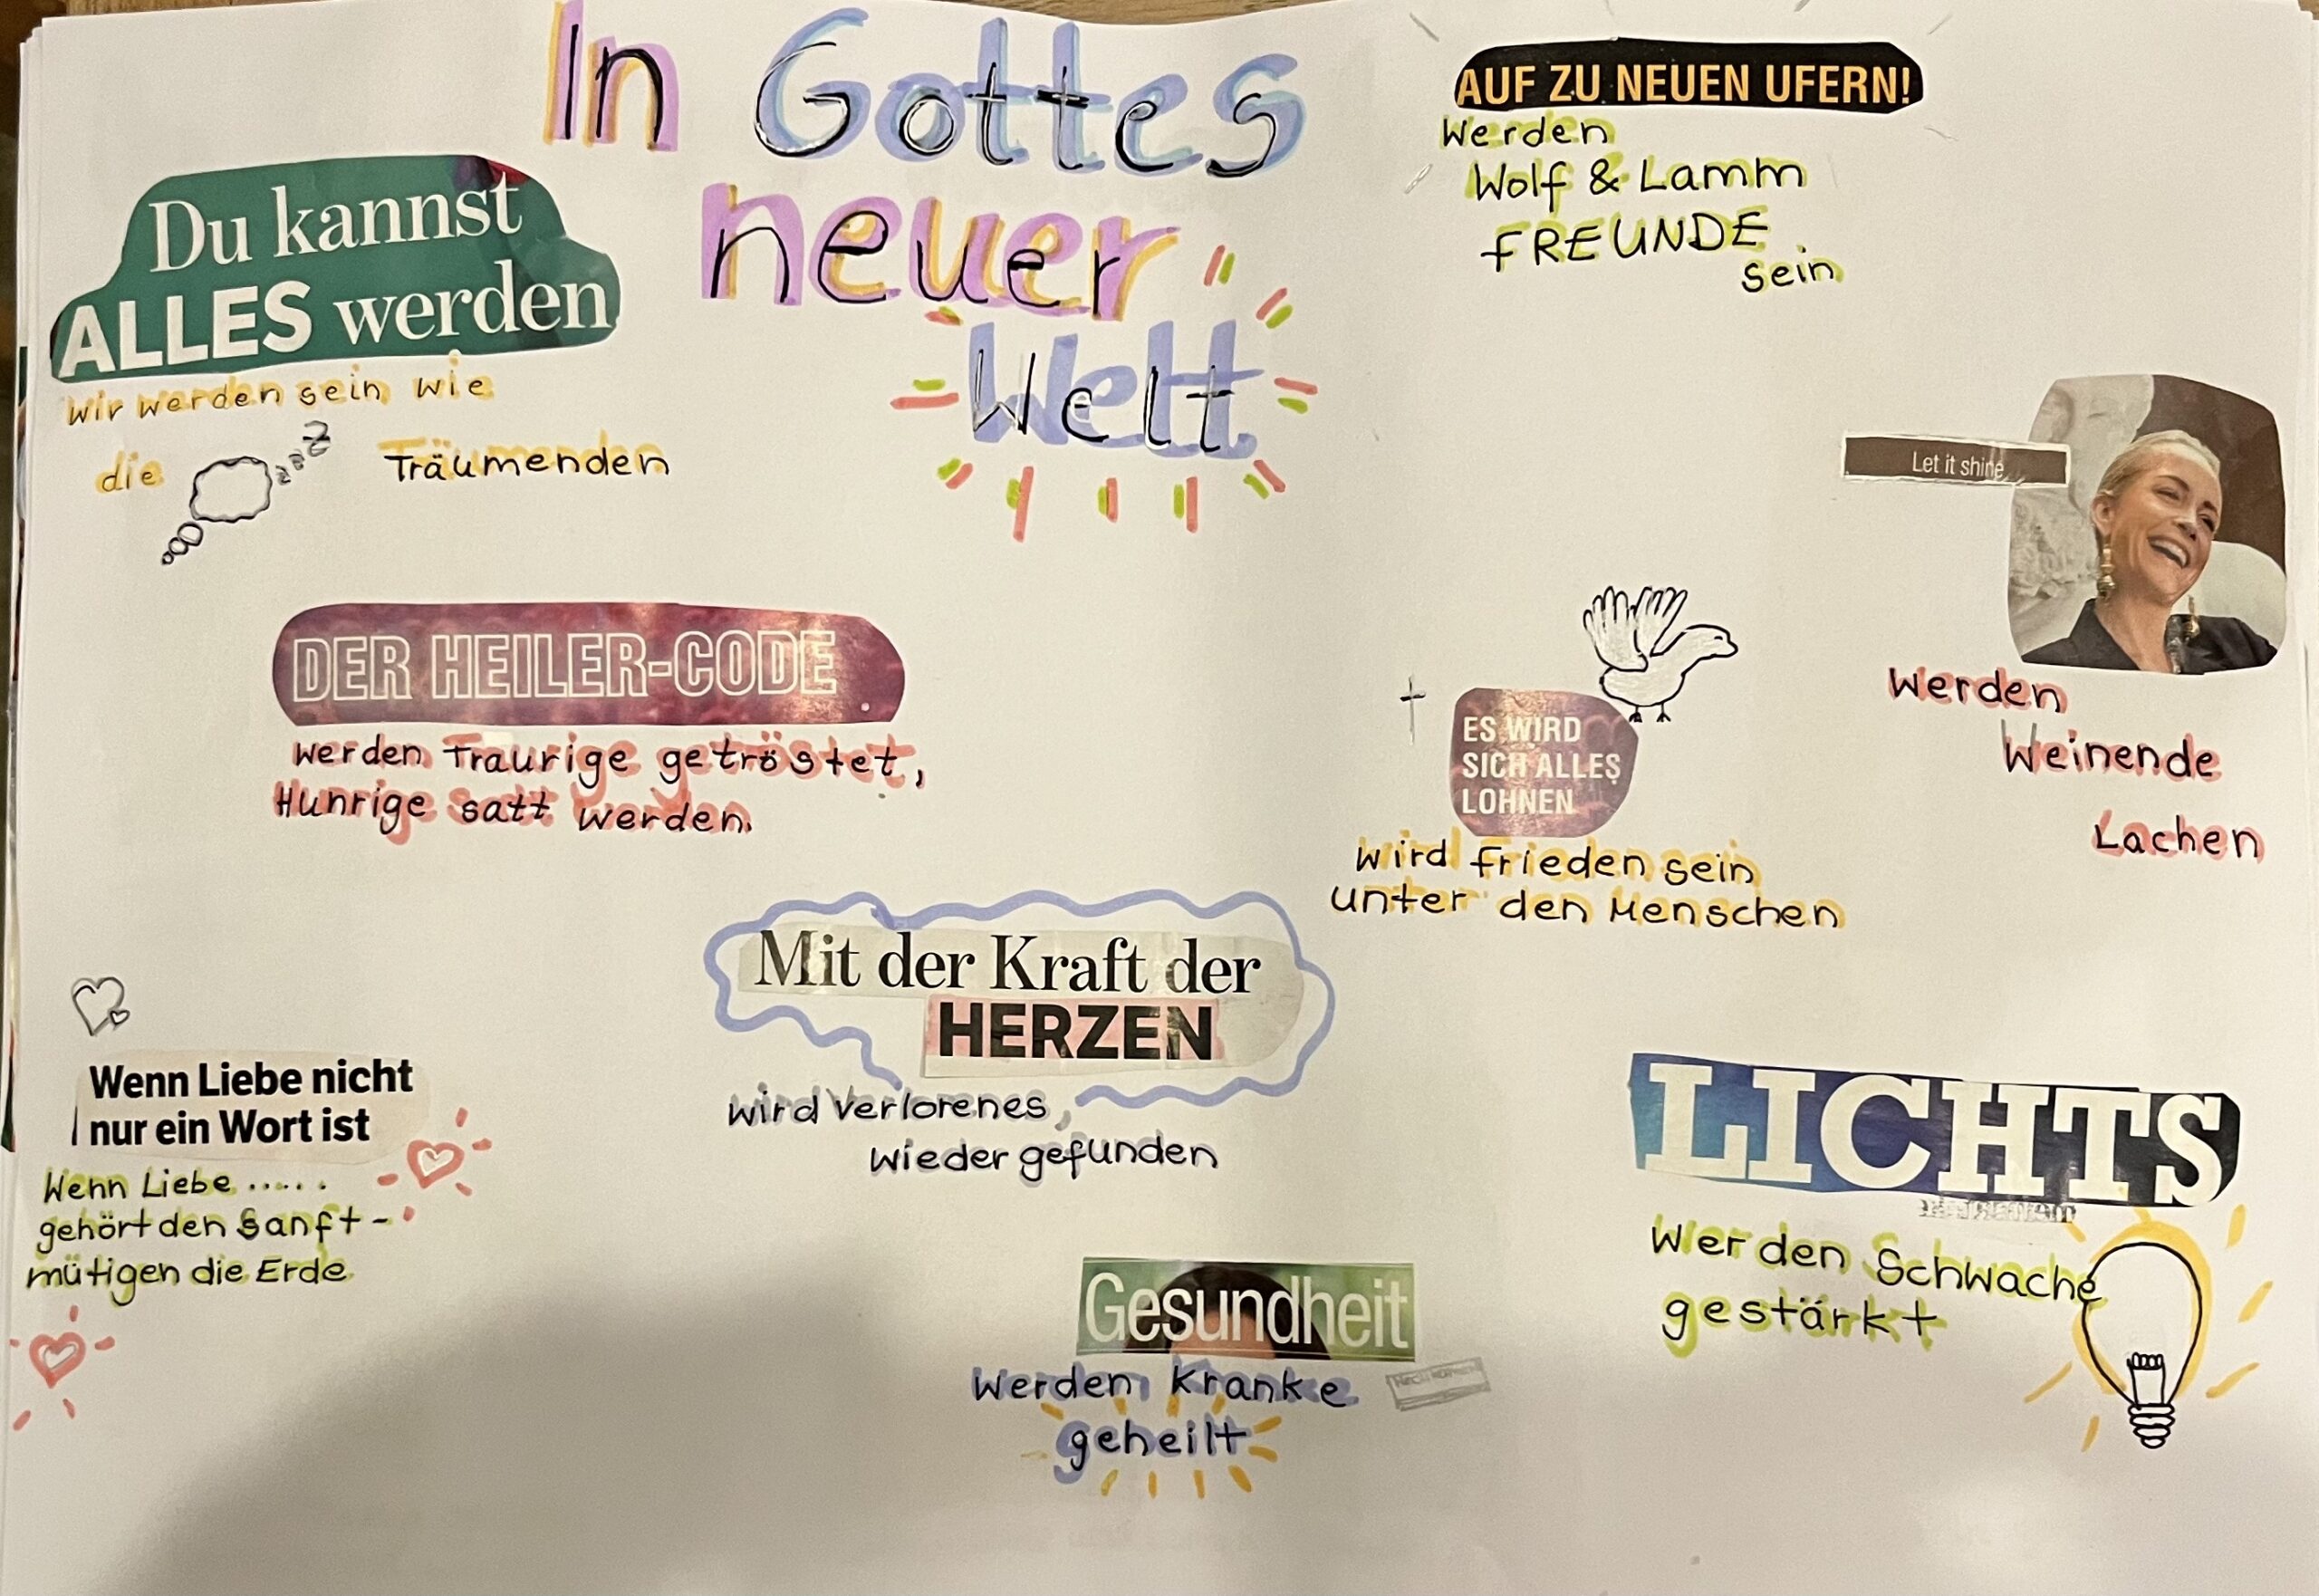 In Gottes
neuer
Welt
Du kannst
ALLES werden
Wir werden sein wie
die zzzz Träumenden
AUF ZU NEUEN UFERN!
Werden
Wolf & Lamm
FREUNDE
sein
Let it shine
Werden
Weinende
Lachen
DER HEILER-CODE
Werden Traurige getröstet,
Hunrige satt werden.
ES WIRD
SICH ALLES
LOHNEN
Wird Frieden sein
unter den Menschen
Mit der Kraft der
HERZEN
wird verlorenes,
wieder gefunden
Wenn Liebe nicht
nur ein Wort ist
Wenn Liebe .....
gehört den Sanft-
mütigen die Erde
LICHTS
Werden Schwache
gestärkt
Gesundheit
Werden Kranke
geheilt